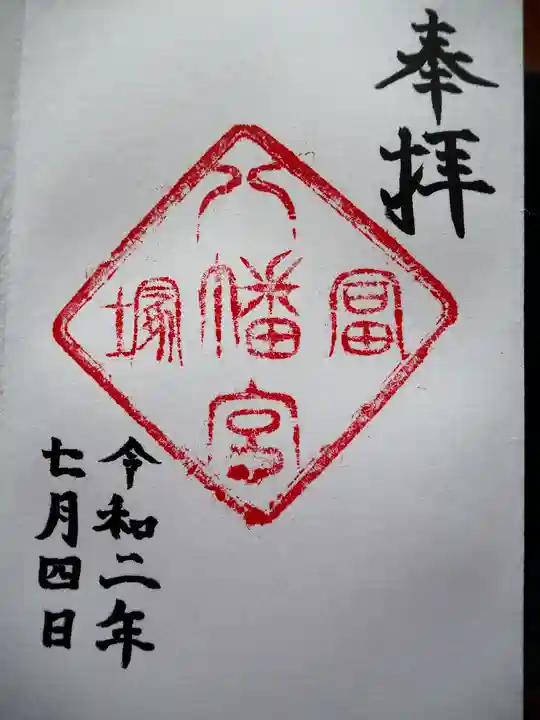 奉拝
八幡宮
冨塚
令和二年
七月四日